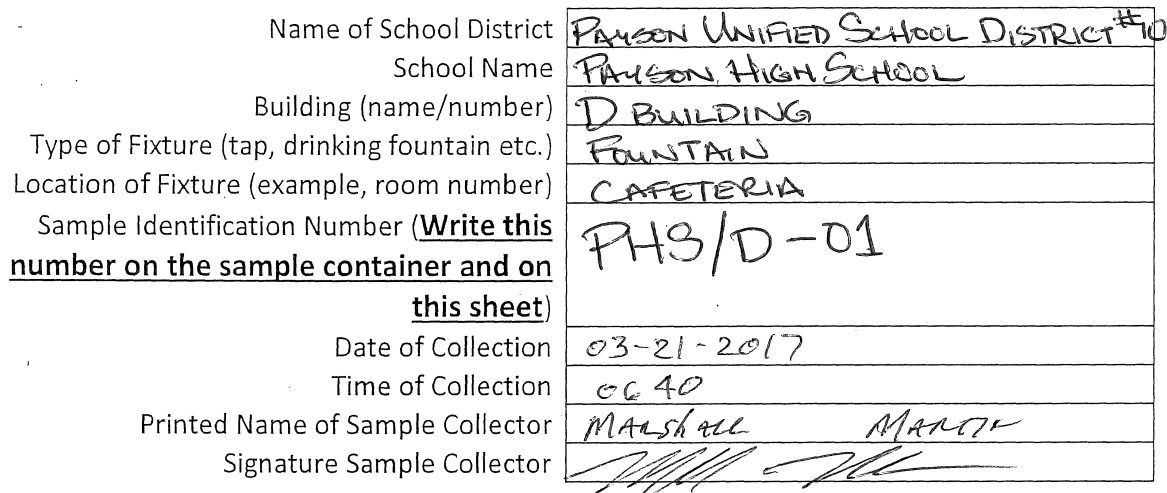 Name of School District PAYSON UNIFIED SCHOOL DISTRICT #10
School Name PAYSON HIGH SCHOOL
Building (name/number) D BUILDING
Type of Fixture (tap, drinking fountain etc.) FOUNTAIN
Location of Fixture (example, room number) CAFETERIA
Sample Identification Number (Write this PHS/D-01
number on the sample container and on
this sheet)
Date of Collection 03-21-2017
Time of Collection 0640
Printed Name of Sample Collector MARSHALL MARTIN
Signature Sample Collector